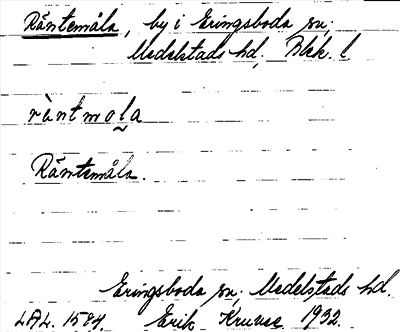 Räntemåla, by i Eringsboda sn,
Medelstads hd, Blek. l
ràntmo̬la
Räntemåla.
Eringsboda sn, Medelstads hd.
LAL. 1584. Erik Kruuse 1932.